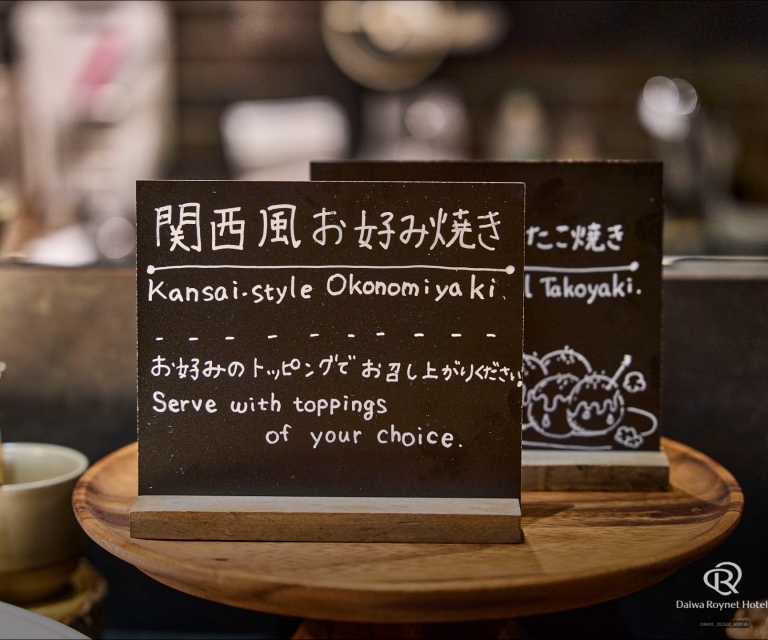 関西風お好み焼き
Kansai-style Okonomiyaki.
お好みのトッピングでお召し上がりください。
Serve with toppings
of your choice.
たこ焼き
Takoyaki.
Daiwa Roynet Hotel